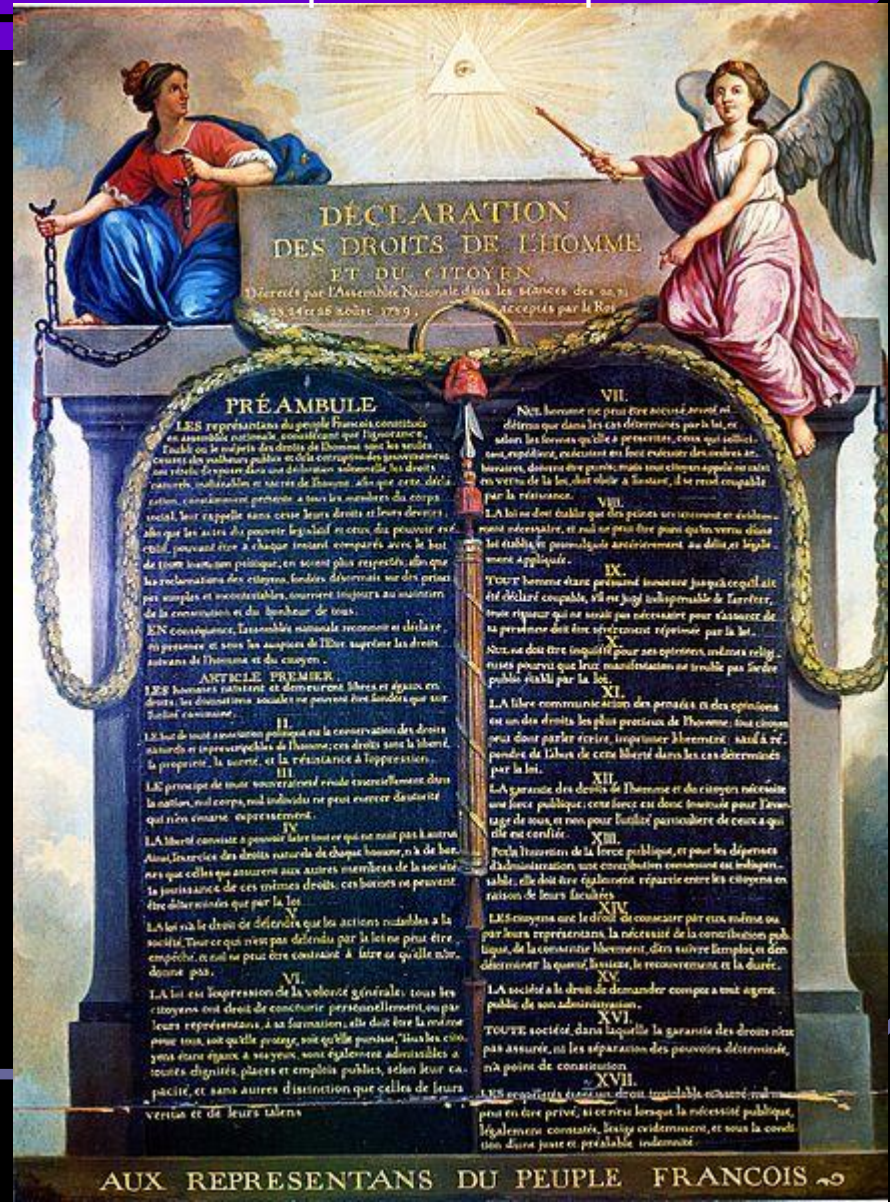 DÉCLARATION
DES DROITS DE L'HOMME
ET DU CITOYEN,
Décretés par l'Assemblée Nationale dans les séances des 20, 21
23, 24 et 26 août 1789, acceptés par le Roi
PRÉAMBULE
LES représentans du peuple François constitués
en assemblée nationale, considérant que l'ignorance,
l'oubli ou le mépris des droits de l'homme sont les seules
causes des malheurs publics et de la corruption des gouvernemens
ont résolu d'exposer dans une déclaration solemnelle, les droits
naturels, inaliénables et sacrés de l'homme; afin que cette décla
ration, constamment présente a tous les membres du corps
social, leur rappelle sans cesse leurs droits et leurs devoirs;
afin que les actes du pouvoir législatif et ceux du pouvoir exé
cutif, pouvant être à chaque instant comparés avec le but
de toute institution politique, en soient plus respectés; afin que
les reclamations des citoyens, fondées désormais sur des princi
pes simples et incontestables, tournent toujours au maintien
de la constitution et du bonheur de tous.
EN conséquence, l'assemblée nationale reconnoit et déclare,
en presence et sous les auspices de l'Etre suprême les droits
suivans de l'homme et du citoyen.
ARTICLE PREMIER.
LES hommes naissent et demeurent libres et égaux en
droits; les distinctions sociales ne peuvent être fondées que sur
l'utilité commune.
II.
LE but de toute association politique est la conservation des droits
naturels et imprescriptibles de l'homme; ces droits sont la liberté,
la propriété, la sureté, et la résistance à l'oppression.
III.
LE principe de toute souveraineté réside essentiellement dans
la nation, nul corps, nul individu ne peut exercer d'autorité
qui n'en émane expressement.
IV.
LA liberté consiste a pouvoir faire tout ce qui ne nuit pas à autrui
Ainsi, l'exercice des droits naturels de chaque homme, n'a de bor
nes que celles qui assurent aux autres membres de la société
la jouissance de ces mêmes droits; ces bornes ne peuvent
être déterminées que par la loi
V.
LA loi n'a le droit de défendre que les actions nuisibles a la
société. Tout ce qui n'est pas défendu par la loi ne peut être
empêché, et nul ne peut être contraint à faire ce qu'elle n'or-
donne pas.
VI.
LA loi est l'expression de la volonté générale; tous les
citoyens ont droit de concourir personnellement, ou par
leurs représentans, à sa formation; elle doit être la même
pour tous, soit qu'elle protege, soit qu'elle punisse. Tous les cito
yens étant égaux à ses yeux, sont également admissibles a
toutes dignités, places et emplois publics, selon leur ca-
pacité, et sans autres distinction que celles de leurs
vertus et de leurs talens
VII.
NUL homme ne peut être accusé, arreté ni
détenu que dans les cas déterminés par la loi, et
selon les formes qu'elle a prescrites, ceux qui sollici-
tent, expédient, exécutent ou font exécuter des ordres ar-
bitraires, doivent être punis; mais tout citoyen appelé ou saisi
en vertu de la loi, doit obéir a l'instant, il se rend coupable
par la résistance.
VIII.
LA loi ne doit établir que des peines strictement et évidem-
ment nécessaire, et nul ne peut être puni qu'en vertu d'une
loi établie et promulguée antérierement au délit, et légale-
ment appliquée.
IX.
TOUT homme étant présumé innocent jusqu'à ce qu'il ait
été déclaré coupable, s'il est jugé indispensable de l'arrêter,
toute rigueur qui ne serait pas nécessaire pour s'assurer de
sa personne doit être sévèrement réprimée par la loi.
X.
NUL ne doit être inquiété pour ses opinions, mêmes religi
euses pourvu que leur manifestation ne trouble pas l'ordre
public établi par la loi.
XI.
LA libre communication des pensées et des opinions
est un des droits les plus precieux de l'homme; tout citoyen
peut donc parler écrire, imprimer librement; sauf à ré-
pondre de l'abus de cette liberté dans les cas déterminés
par la loi.
XII.
LA garantie des droits de l'homme et du citoyen nécessite
une force publique; cette force est donc instituée pour l'avan-
tage de tous, et non pour l'utilité particuliere de ceux a qui
elle est confiée.
XIII.
Pour l'entretien de la force publique, et pour les dépenses
d'administration, une contribution commune est indispen-
sable; elle doit être également répartie entre les citoyens en
raison de leurs facultées
XIV.
LES citoyens ont le droit de constater par eux même ou
par leurs représentans, la nécessité de la contribution pub
lique, de la consentir librement, d'en suivre l'emploi, et d'en
déterminer la quotité, l'assiette, le recouvrement et la durée.
XV.
LA société a le droit de demander compte a tout agent
public de son administration.
XVI.
TOUTE société, dans laquelle la garantie des droits n'est
pas assurée, ni les séparation des pouvoirs déterminée,
n'a point de constitution
XVII.
LES propriétés étant un droit inviolable et sacré, nul ne
peut en être privé, si ce n'est lorsque la nécessité publique,
légalement constatée, l'exige evidemment, et sous la condi-
tion d'une juste et préalable indemnité.
AUX REPRESENTANS DU PEUPLE FRANCOIS